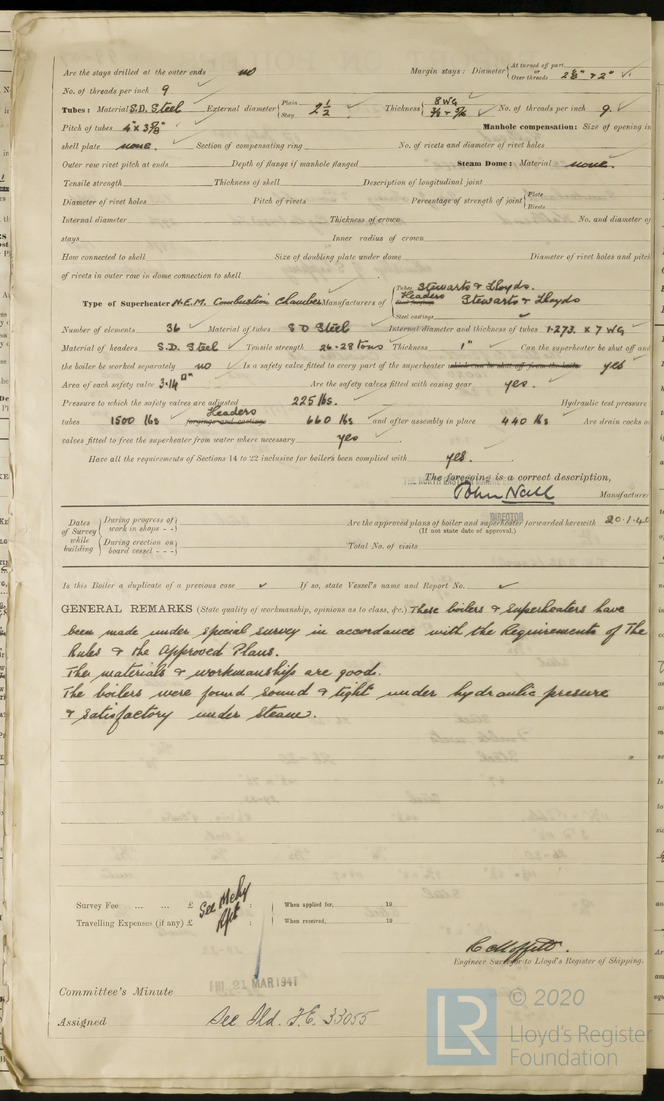 Are the stays drilled at the outer ends no Margin stays: Diameter { At turned off part, or Over threads 2⅛" & 2"
No. of threads per inch 9
Tubes: Material S.D. Steel External diameter { Plain Stay 2½ Thickness { 8 WG No. of threads per inch 9.
Pitch of tubes 4" x 3⅞" Manhole compensation: Size of opening in
shell plate none. Section of compensating ring No. of rivets and diameter of rivet holes
Outer row rivet pitch at ends Depth of flange if manhole flanged Steam Dome: Material none.
Tensile strength Thickness of shell Description of longitudinal joint
Diameter of rivet holes Pitch of rivets Percentage of strength of joint { Plate Rivets
Internal diameter Thickness of crown No. and diameter of
stays Inner radius of crown
How connected to shell Size of doubling plate under dome Diameter of rivet holes and pitch
of rivets in outer row in dome connection to shell
Type of Superheater N.E.M. Combustion Chamber Manufacturers of { Tubes Stewarts & Lloyds.
Headers Stewarts & Lloyds
Steel castings
Number of elements 36 Material of tubes S D Steel Internal diameter and thickness of tubes 1.273. x 7 WG
Material of headers S.D. Steel Tensile strength 26-28 tons Thickness 1" Can the superheater be shut off and
the boiler be worked separately no Is a safety valve fitted to every part of the superheater which can be shut off from the boiler yes
Area of each safety valve 3.14 □" Are the safety valves fitted with easing gear yes.
Pressure to which the safety valves are adjusted 225 lbs. Hydraulic test pressure
tubes 1500 lbs Headers forgings and castings 660 lbs and after assembly in place 440 lbs Are drain cocks o
valves fitted to free the superheater from water where necessary yes
Have all the requirements of Sections 14 to 22 inclusive for boilers been complied with yes
The foregoing is a correct description,
THE NORTH EASTERN MARINE
John Nall Manufacturer
DIRECTOR
Dates of Survey while building { During progress of work in shops - - Are the approved plans of boiler and superheater forwarded herewith 20.1.40
(If not state date of approval.)
During erection on board vessel - - - Total No. of visits
Is this Boiler a duplicate of a previous case If so, state Vessel's name and Report No.
GENERAL REMARKS (State quality of workmanship, opinions as to class, &c.) These boilers & superheaters have
been made under special survey in accordance with the Requirements of The
Rules & the Approved Plans.
The materials & workmanship are good.
The boilers were found sound & tight under hydraulic presure
& satisfactory under steam.
Survey Fee ... ... £ See Mchy Rpt : : When applied for, 19
Travelling Expenses (if any) £ : : When received, 19
Engineer Surveyor to Lloyd's Register of Shipping.
FRI. 21 MAR 1941
Committee's Minute
Assigned See Sld. F.E. 33055
LR © 2020
Lloyd's Register
Foundation